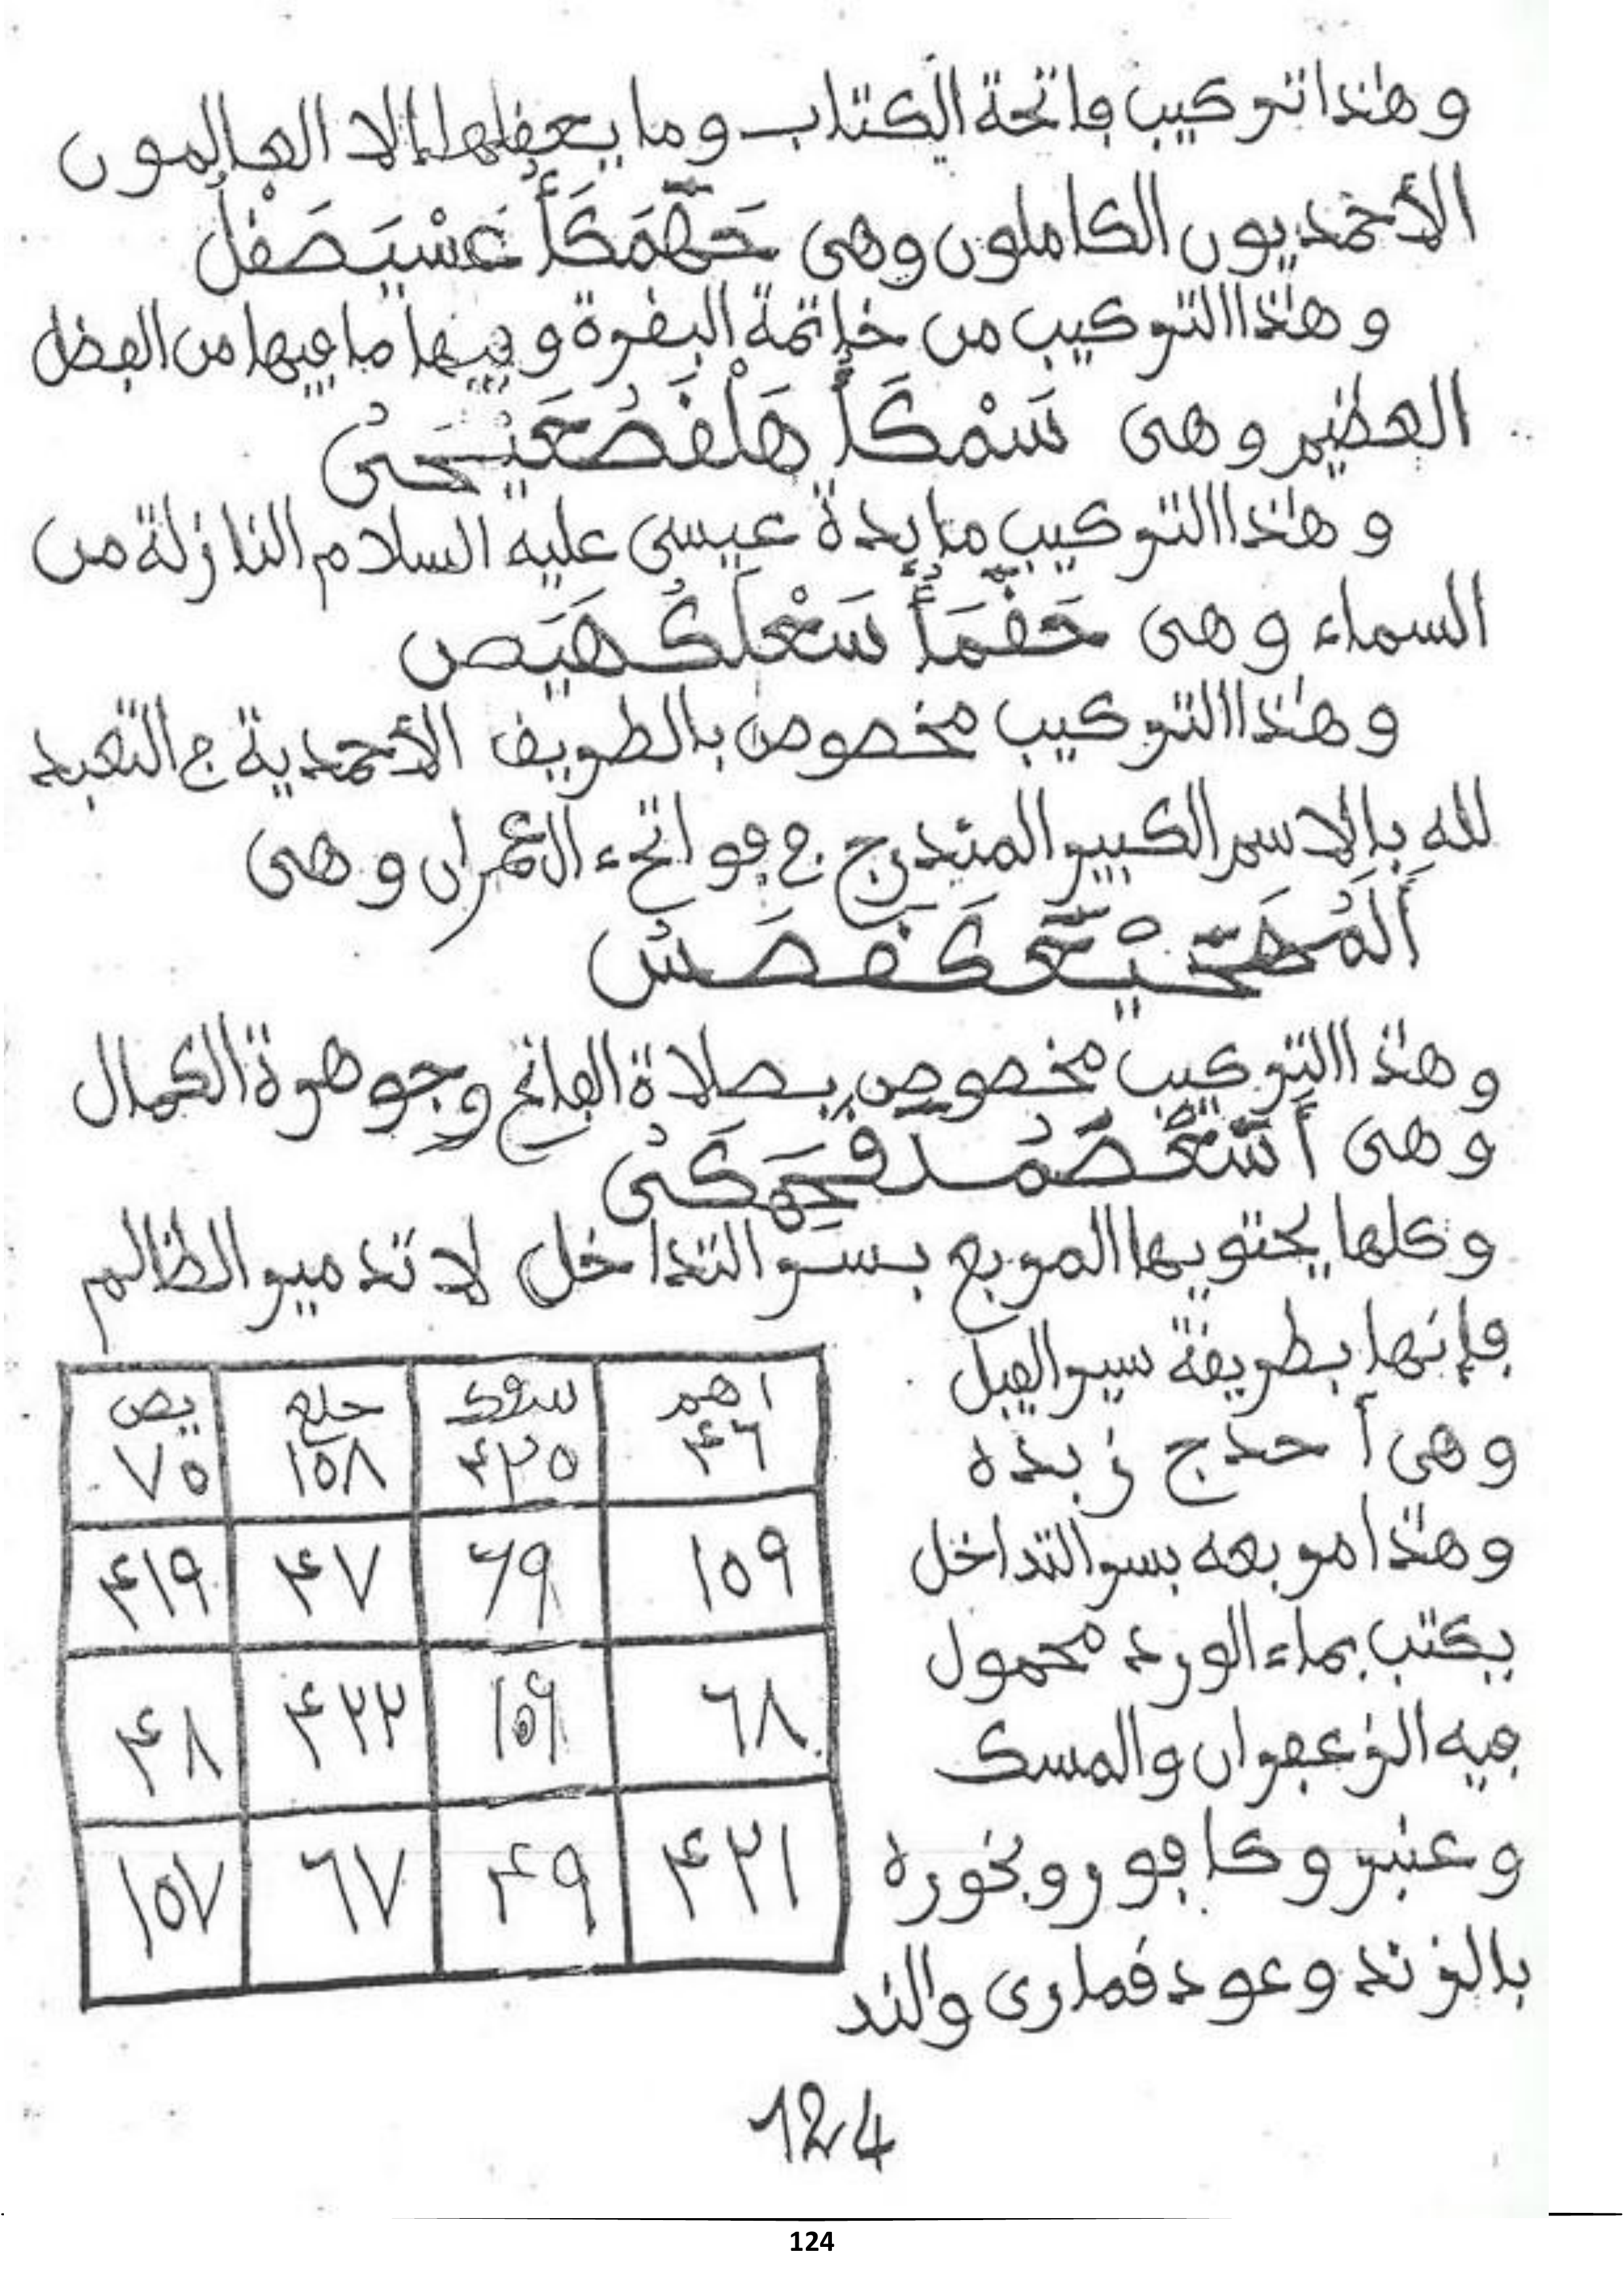 وهذا تركيب فاتحة الكتاب وما يعقلها إلا العالمون
الأحمديون الكاملون وهى حَهَمَكَأُ عَسْيَصَقْلُ
وهذا التركيب من خاتمة البقرة وفيها ما فيها من الفضل
العظيم وهى سَمْكَأُ هَلْقَصُعَيْحَنُ
وهذا التركيب مايدة عيسى عليه السلام النازلة من
السماء وهى حَقْمَأُ سَعْلَكُهَيَصٍ
وهذا التركيب مخصوص بالطريق الأحمدية ج التعبد
للهِ بالاسم الكبير المندرج ج فواتح ءال عمران وهى
أَلَمُهَحَيْعَكَقَصَنُ
وهذا التركيب مخصوص بصلاة الفاتح وجوهرة الكمال
وهى
وكلها يحتويها المربع بسر التداخل لا تدمير الظالم
فإنها بطريقة سير الفيل
وهى أ حدج زبده
وهذا مربعه بسر التداخل
يكتب بماء الورد محمول
فيه الزعفران والمسك
وعنبر وكافور وبخوره
بالزند وعود قمارى والند
اهم سقك حلع يص
٤٦ ٤٢٠ ١٥٨ ٧٠
١٥٩ ٦٩ ٤٧ ٤١٩
٦٨ ١٥٦ ٤٢٢ ٤٨
٤٢١ ٤٩ ٦٧ ١٥٧
124
124